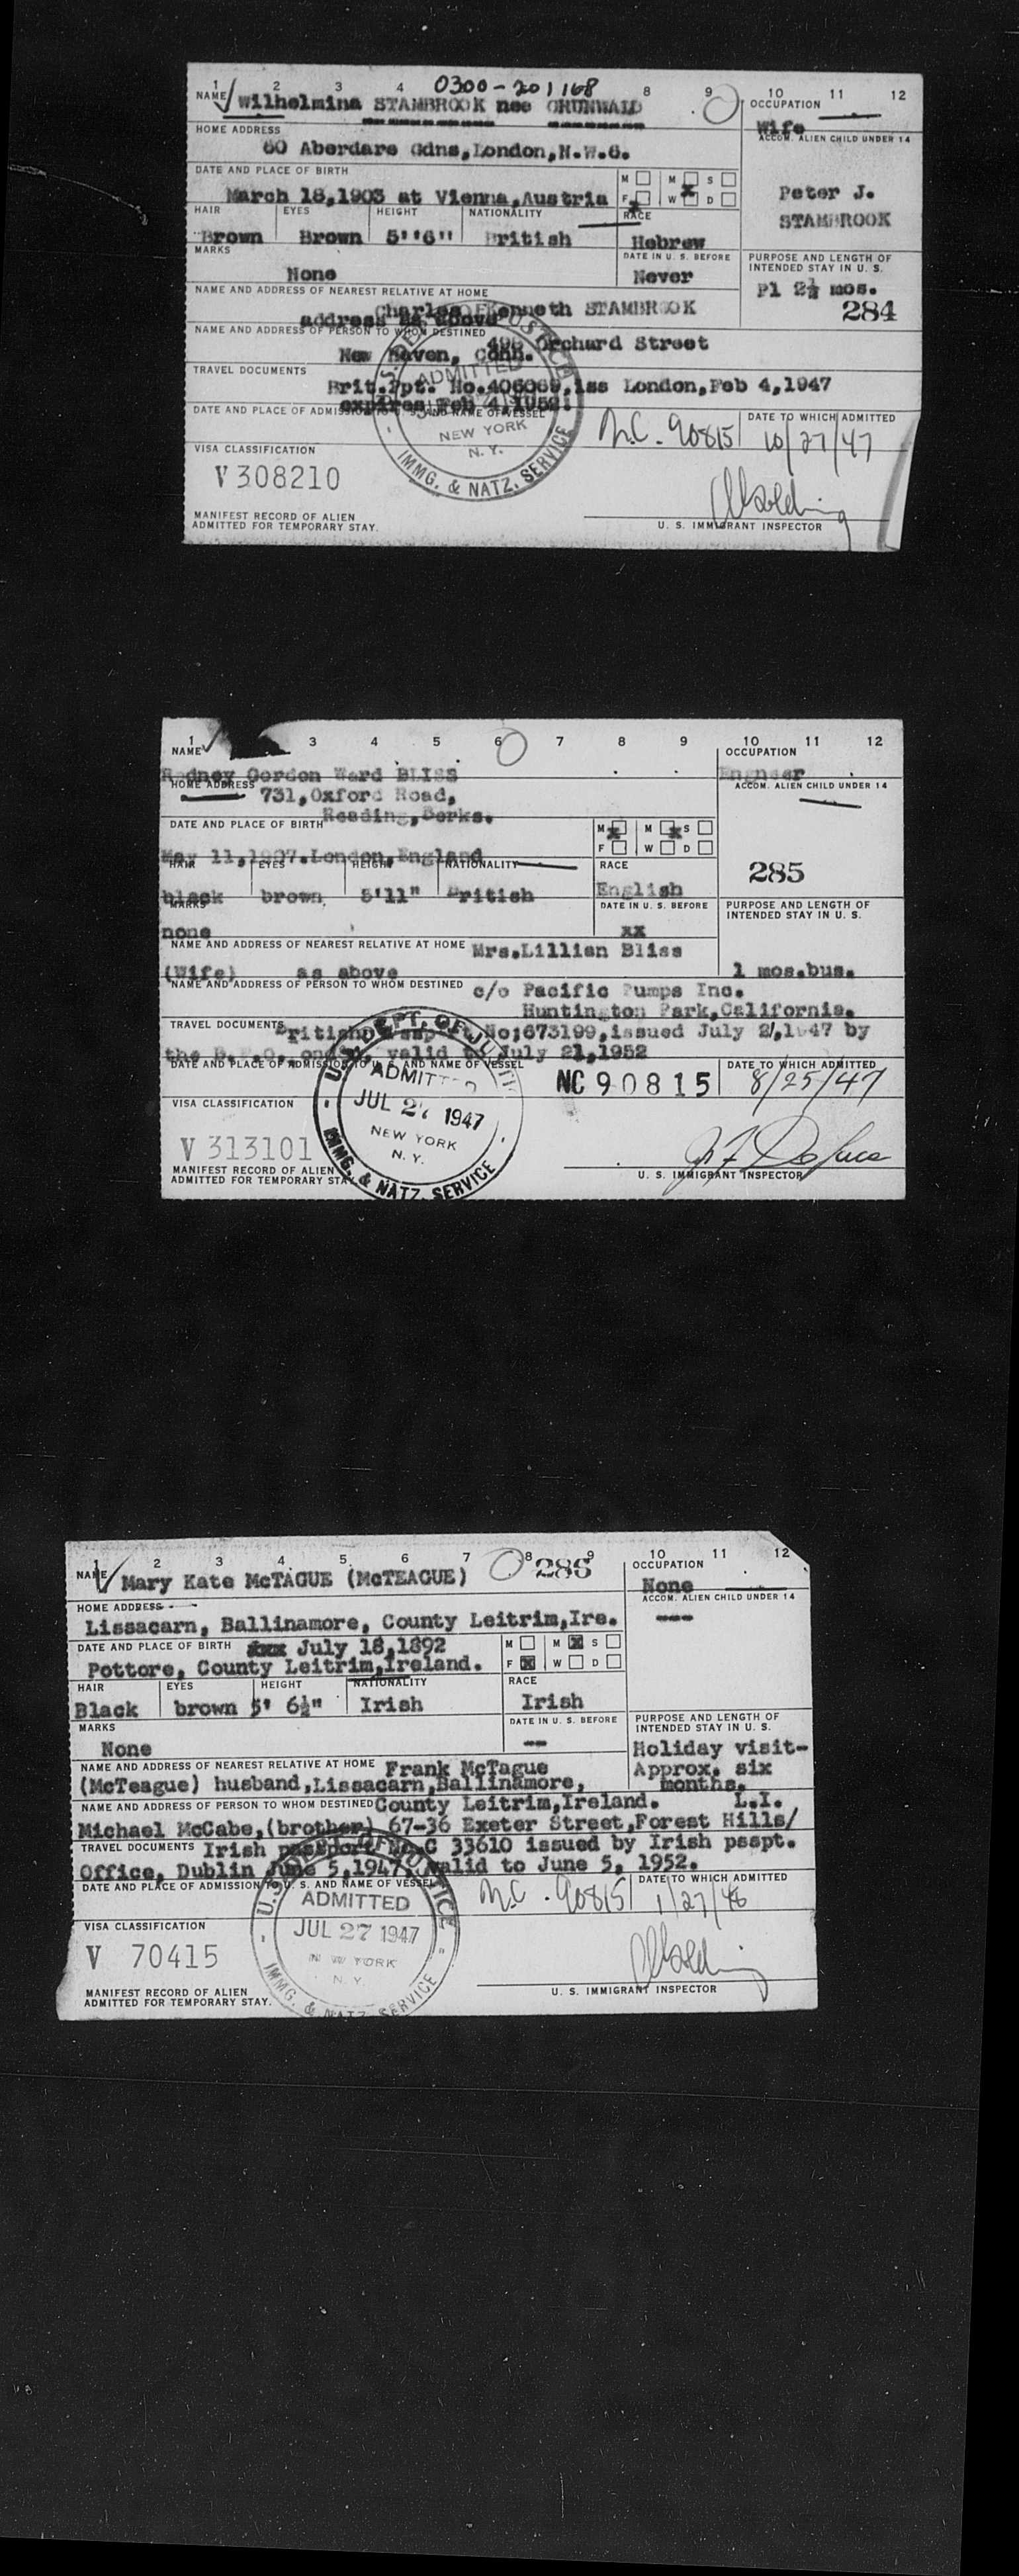 1 2 3 4 0300-201168 8 9 10 11 12
NAME Wilhelmina STAMBROOK nee GRUNWALD
OCCUPATION
Wife
HOME ADDRESS
60 Aberdare Gdns,London,N.W.6.
ACCOM. ALIEN CHILD UNDER 14
Peter J.
STAMBROOK
DATE AND PLACE OF BIRTH
March 18,1903 at Vienna,Austria
M M X S
F X W D
HAIR EYES HEIGHT NATIONALITY RACE
Brown Brown 5''6" British Hebrew
MARKS
None
DATE IN U. S. BEFORE
Never
PURPOSE AND LENGTH OF
INTENDED STAY IN U. S.
Pl 2½ mos.
284
NAME AND ADDRESS OF NEAREST RELATIVE AT HOME
Charles Kenneth STAMBROOK
address as above
NAME AND ADDRESS OF PERSON TO WHOM DESTINED
Orchard Street
New Haven, Conn.
TRAVEL DOCUMENTS
Brit.Ppt. No.406069,iss London,Feb 4,1947
expires Feb 4,1952.
DATE AND PLACE OF ADMISSION TO U. S. AND NAME OF VESSEL
N.C. 90815
DATE TO WHICH ADMITTED
10/27/47
ADMITTED
NEW YORK
N. Y.
IMMG. & NATZ. SERVICE
VISA CLASSIFICATION
V 308210
MANIFEST RECORD OF ALIEN
ADMITTED FOR TEMPORARY STAY.
U. S. IMMIGRANT INSPECTOR
1 3 4 5 6 7 8 9 10 11 12
NAME
Rodney Gordon Ward BLISS
OCCUPATION
Engneer
HOME ADDRESS 731,Oxford Road,
Reading,Berks.
ACCOM. ALIEN CHILD UNDER 14
DATE AND PLACE OF BIRTH
May 11,1907.London,England
M X M X S
F W D
285
HAIR EYES HEIGHT NATIONALITY RACE
black brown 5'11" British English
MARKS
none
DATE IN U. S. BEFORE
xx
PURPOSE AND LENGTH OF
INTENDED STAY IN U. S.
1 mos.bus.
NAME AND ADDRESS OF NEAREST RELATIVE AT HOME Mrs.Lillian Bliss
(Wife) as above
NAME AND ADDRESS OF PERSON TO WHOM DESTINED c/o Pacific Pumps Inc.
Huntington Park,California.
TRAVEL DOCUMENTS British No;673199,issued July 21,1947 by
the valid to July 21,1952
DATE AND PLACE OF ADMISSION TO U. S. AND NAME OF VESSEL
NC 90815
DATE TO WHICH ADMITTED
8/25/47
U. S. DEPT. OF JUSTICE
ADMITTED
JUL 27 1947
NEW YORK
N. Y.
IMMG. & NATZ. SERVICE
VISA CLASSIFICATION
V 313101
MANIFEST RECORD OF ALIEN
ADMITTED FOR TEMPORARY STAY.
U. S. IMMIGRANT INSPECTOR
1 2 3 4 5 6 7 8 286 9 10 11 12
NAME Mary Kate McTAGUE (McTEAGUE)
OCCUPATION
None
HOME ADDRESS
Lissacarn, Ballinamore, County Leitrim,Ire.
ACCOM. ALIEN CHILD UNDER 14
---
DATE AND PLACE OF BIRTH July 18,1892
Pottore, County Leitrim,Ireland.
M M X S
F X W D
HAIR EYES HEIGHT NATIONALITY RACE
Black brown 5' 6½" Irish Irish
MARKS
None
DATE IN U. S. BEFORE
--
PURPOSE AND LENGTH OF
INTENDED STAY IN U. S.
Holiday visit-
Approx. six
months.
NAME AND ADDRESS OF NEAREST RELATIVE AT HOME Frank McTague
(McTeague) husband,Lissacarn,Ballinamore,
NAME AND ADDRESS OF PERSON TO WHOM DESTINED County Leitrim,Ireland. L.I.
Michael McCabe,(brother) 67-36 Exeter Street,Forest Hills/
TRAVEL DOCUMENTS Irish passport No.C 33610 issued by Irish psspt.
Office, Dublin June 5,1947, valid to June 5, 1952.
DATE AND PLACE OF ADMISSION TO U. S. AND NAME OF VESSEL
N.C. 90815
DATE TO WHICH ADMITTED
1/27/48
ADMITTED
JUL 27 1947
NEW YORK
N. Y.
IMMG. & NATZ. SERVICE
VISA CLASSIFICATION
V 70415
MANIFEST RECORD OF ALIEN
ADMITTED FOR TEMPORARY STAY.
U. S. IMMIGRANT INSPECTOR